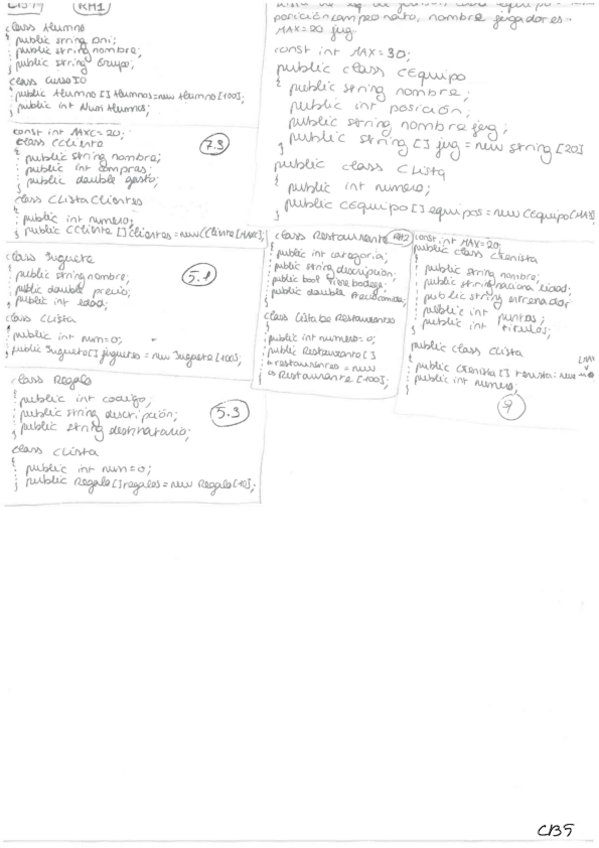 RH1
class Alumno
{ public string Dni;
public string nombre;
} public string Grupo;
class CursoIO
{ public Alumno [] Alumnos=new Alumno [100];
} public int NumAlumnos;
const int MAXC = 20;
7.3
class CCliente
{ public string nombre;
public int compras;
} public double gasto;
class CListaClientes
{ public int numero;
} public CCliente [] clientes = new CCliente [MAXC];
class Juguete
5.1
{ public string nombre;
public double precio;
} public int edad;
class CLista
{ public int num=0;
} public Juguete [] juguetes = new Juguete [100];
class Regalo
{ public int codigo;
public string descripción;
} public string destinatario;
5.3
class CLista
{ public int num=0;
} public Regalo [] regalos = new Regalo [10];
posición campeonato, nombre jugadores
MAX=20 jug
const int MAX = 30;
public class CEquipo
{ public string nombre;
public int posición;
public string nombre jug;
} public string [] jug = new string [20]
public class CLista
{ public int numero;
} public CEquipo [] equipos = new CEquipo [MAX]
class Restaurante
RH2
{ public int categoria;
public string descripcion;
public bool tiene bodega;
} public double PrecioComida;
class Lista De Restaurantes
{ public int numero=0;
public Restaurante []
restaurantes = new
} Restaurante [100];
const int MAX=20;
public class CTenista
{ public string nombre;
public string nacionalidad;
public string entrenador
public int puntos;
} public int titulos;
public class CLista
{ public CTenista [] tenista = new
} public int numero;
9
CB5